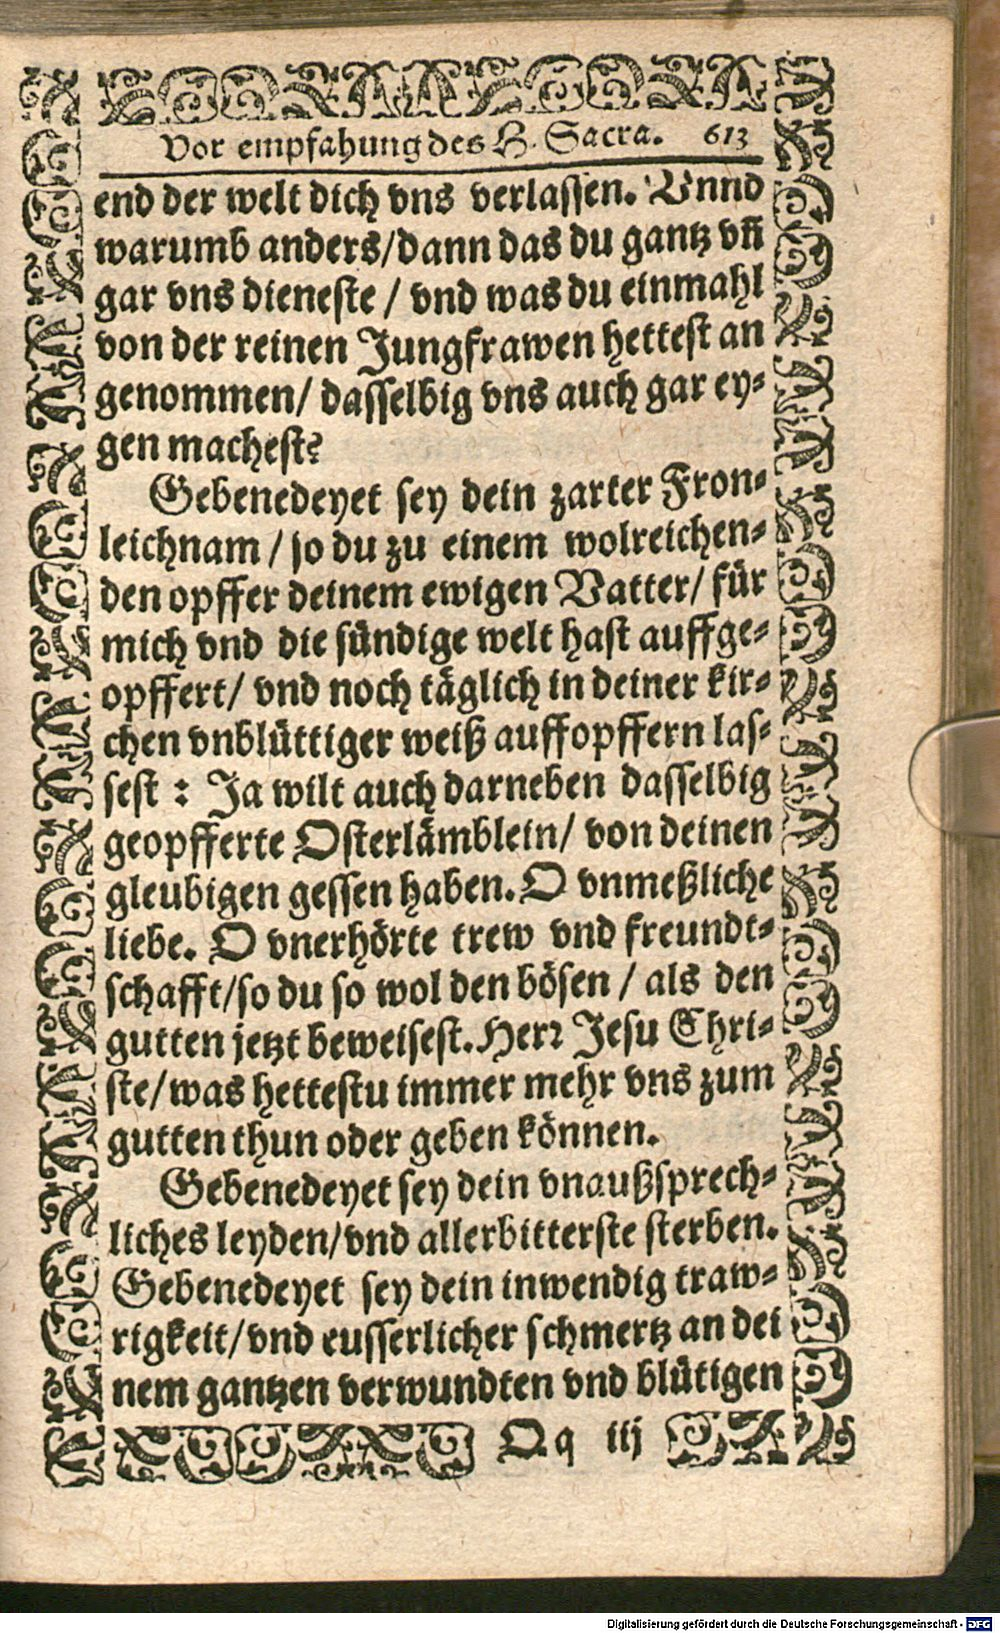 Vor empfahung des H. Sacra. 613
end der welt dich vns verlassen. Vnnd
warumb anders/dann das du gantz vn̄
gar vns dieneste / vnd was du einmahl
von der reinen Jungfrawen hettest an
genommen/ dasselbig vns auch gar ey-
gen machest?
Gebenedeyet sey dein zarter Fron-
leichnam / so du zu einem wolreichen-
den opffer deinem ewigen Vatter/ für
mich vnd die sündige welt hast auffge-
opffert/ vnd noch täglich in deiner kir-
chen vnblüttiger weiß auffopffern las-
sest : Ja wilt auch darneben dasselbig
geopfferte Osterlämblein/ von deinen
gleubigen gessen haben. O vnmeßliche
liebe. O vnerhörte trew vnd freundt-
schafft/so du so wol den bösen / als den
gutten jetzt beweisest. Herr Jesu Chri-
ste/was hettestu immer mehr vns zum
gutten thun oder geben können.
Gebenedeyet sey dein vnaußsprech-
liches leyden/vnd allerbitterste sterben.
Gebenedeyet sey dein inwendig traw-
rigkeit/vnd eusserlicher schmertz an dei
nem gantzen verwundten vnd blütigen
Qq iij
Digitalisierung gefördert durch die Deutsche Forschungsgemeinschaft - DFG